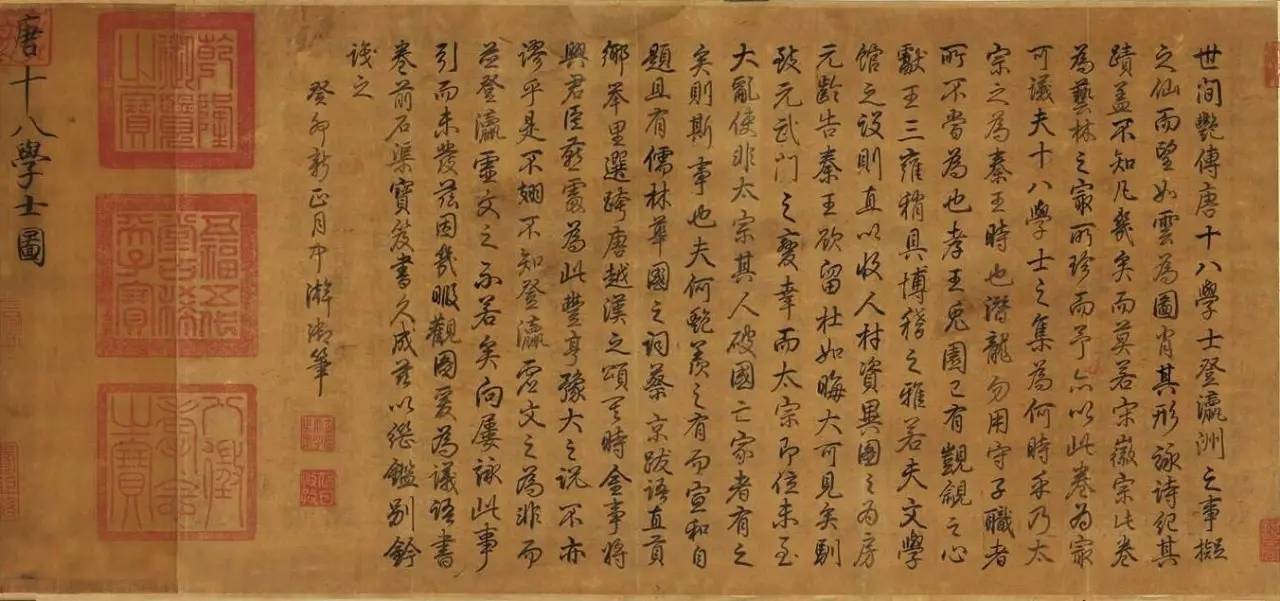 世間艷傳唐十八學士登瀛洲之事擬
之仙而望如雲為圖肖其形詠詩紀其
蹟盖不知凡幾矣而莫若宋徽宗此卷
為藝林之冣所珍而予亦以此卷為冣
可議夫十八學士之集為何時乎乃太
宗之為秦王時也潛龍勿用守子職者
所不當為也孝王兔園已有覬覦之心
獻王三雍稍具博稽之雅若夫文學
館之設則直以收人材資異圖之為房
元齡告秦王欲留杜如晦大可見矣馴
致元武門之變幸而太宗即位未至
大亂使非太宗其人破國亡家者有之
矣則斯事也夫何艷羨之有而宣和自
題且有儒林華國之詞蔡京跋語直貢
鄉舉里選跨唐越漢之頌其時金事將
興君臣燕宴為此豐亨豫大之說不亦
謬乎是不翅不知登瀛虛文之為非而
并登瀛虛文之不若矣向屢詠此事
引而未發茲因幾暇觀圖爰為議語書
卷前石渠寶笈書久成茲以繼鑑別鈐
識之
癸卯新正月中澣御筆
乾隆御覽之寶
五福五代堂古稀天子寶
八徵耄念之寶
唐十八學士圖